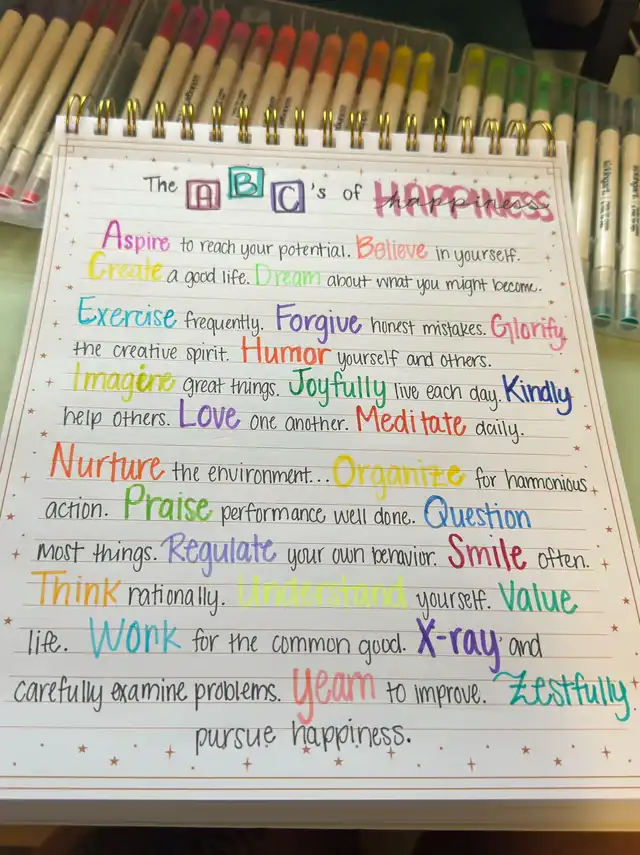 The ABC's of HAPPINESS
happiness
Aspire to reach your potential. Believe in yourself.
Create a good life. Dream about what you might become.
Exercise frequently. Forgive honest mistakes. Glorify
the creative spirit. Humor yourself and others.
Imagine great things. Joyfully live each day. Kindly
help others. Love one another. Meditate daily.
Nurture the environment... Organize for harmonious
action. Praise performance well done. Question
most things. Regulate your own behavior. Smile often.
Think rationally. Understand yourself. Value
life. Work for the common good. X-ray and
carefully examine problems. Yearn to improve. Zestfully
pursue happiness.